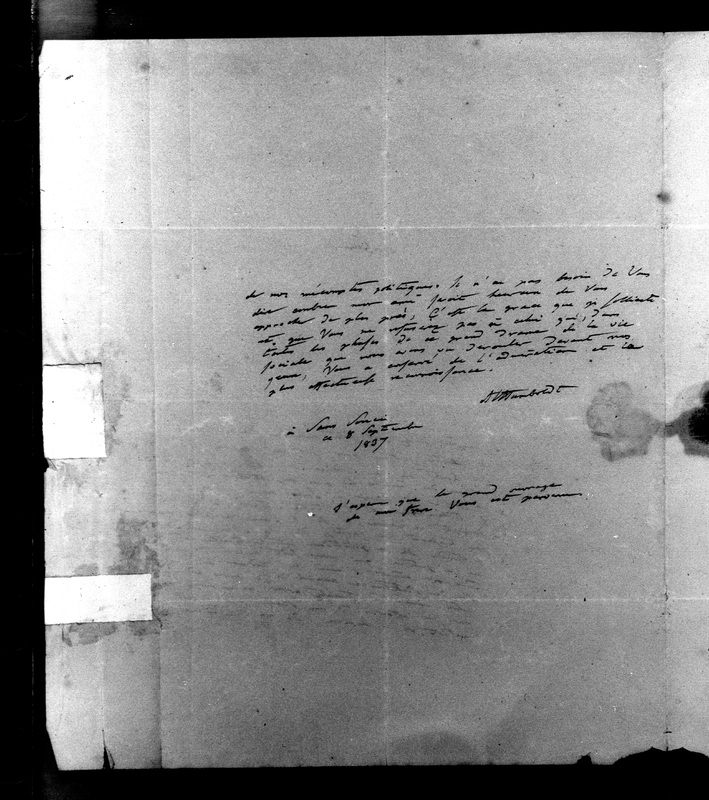 de nos mécomptes politiques. Je n'ai pas besoin de Vous
dire combien mon ami serait heureux de Vous
approcher de plus près, C'est la grace que je sollicite
et que Vous ne refuserez pas à celui qui, dans
toutes les phases de ce grand drame de la vie
sociale que nous avons vu derouler devant nos
yeux, Vous a conservé de l'admiration et la
plus affectueuse reconnoissance.
AlHumboldt
à Sans Souci
ce 8 Septembre
1837
J'espère que le grand ouvrage
de mon frere Vous est parvenu.